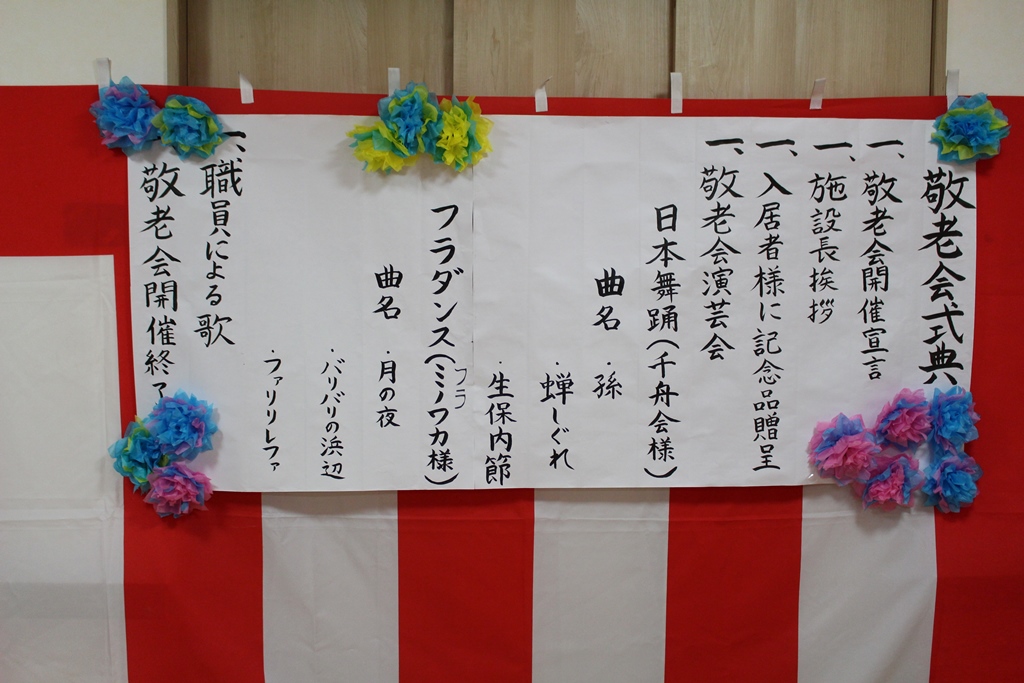 敬老会式典
一、敬老会開催宣言
一、施設長挨拶
一、入居者様に記念品贈呈
一、敬老会演芸会
日本舞踊(千舟会様)
曲名・孫
・蝉しぐれ
・生保内節
フラダンス(フラミノワカ様)
曲名・月の夜
・バリバリの浜辺
・ファリリレファ
一、職員による歌
敬老会開催終了